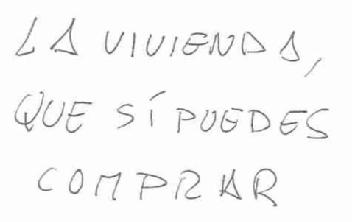 LA VIVIENDA,
QUE SÍ PUEDES
COMPRAR